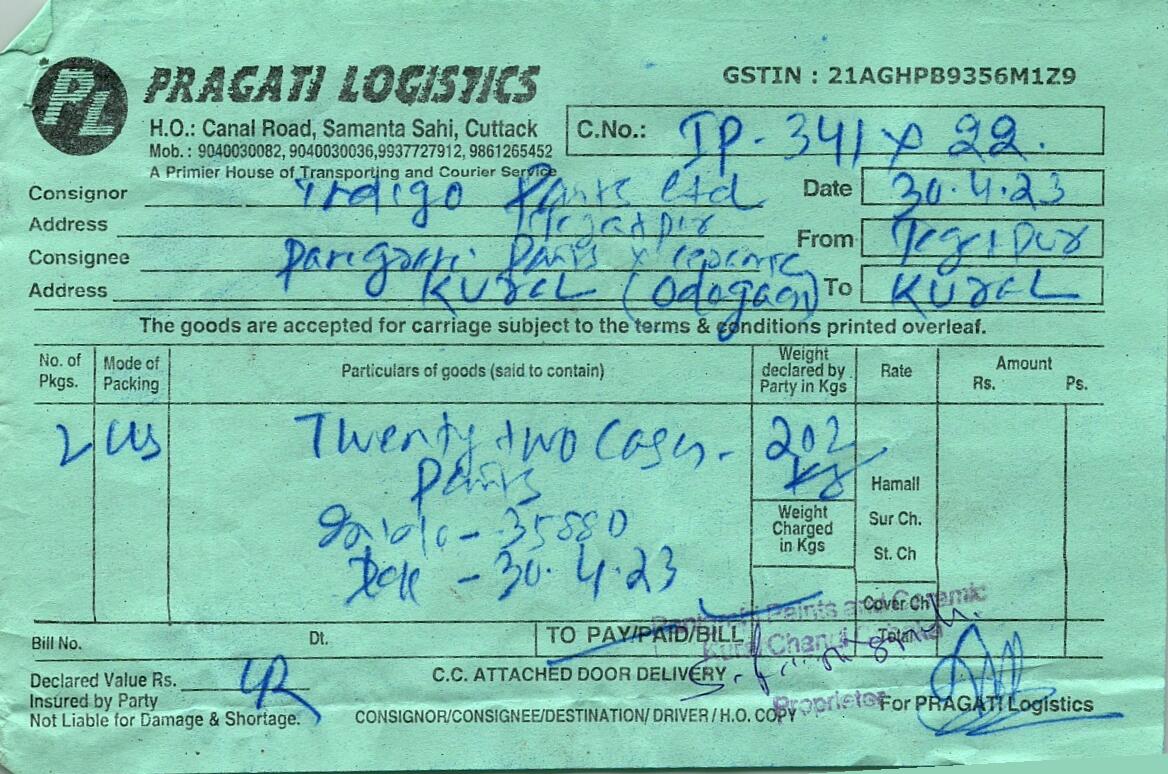 PL PRAGATI LOGISTICS
GSTIN : 21AGHPB9356M1Z9
H.O.: Canal Road, Samanta Sahi, Cuttack
Mob. : 9040030082, 9040030036,9937727912, 9861265452
A Primier House of Transporting and Courier Service
C.No.: IP - 341 x 22.
Consignor Indigo Paints Ltd
Date 30.4.23
Address
From
Consignee
Address Kural (Odagaon)
To Kural
The goods are accepted for carriage subject to the terms & conditions printed overleaf.
No. of Pkgs. Mode of Packing Particulars of goods (said to contain) Weight declared by Party in Kgs Rate Amount Rs. Ps.
Twenty two Cases - 202 Kg
Paints
Hamall
- 35880
Weight Charged in Kgs
Sur Ch.
St. Ch
- 30.4.23
Cover Ch
Paints and Ceramic
Bill No. Dt. TO PAY/PAID/BILL Total
Declared Value Rs.
C.C. ATTACHED DOOR DELIVERY
Insured by Party
Proprietor
For PRAGATI Logistics
Not Liable for Damage & Shortage.
CONSIGNOR/CONSIGNEE/DESTINATION/ DRIVER / H.O. COPY